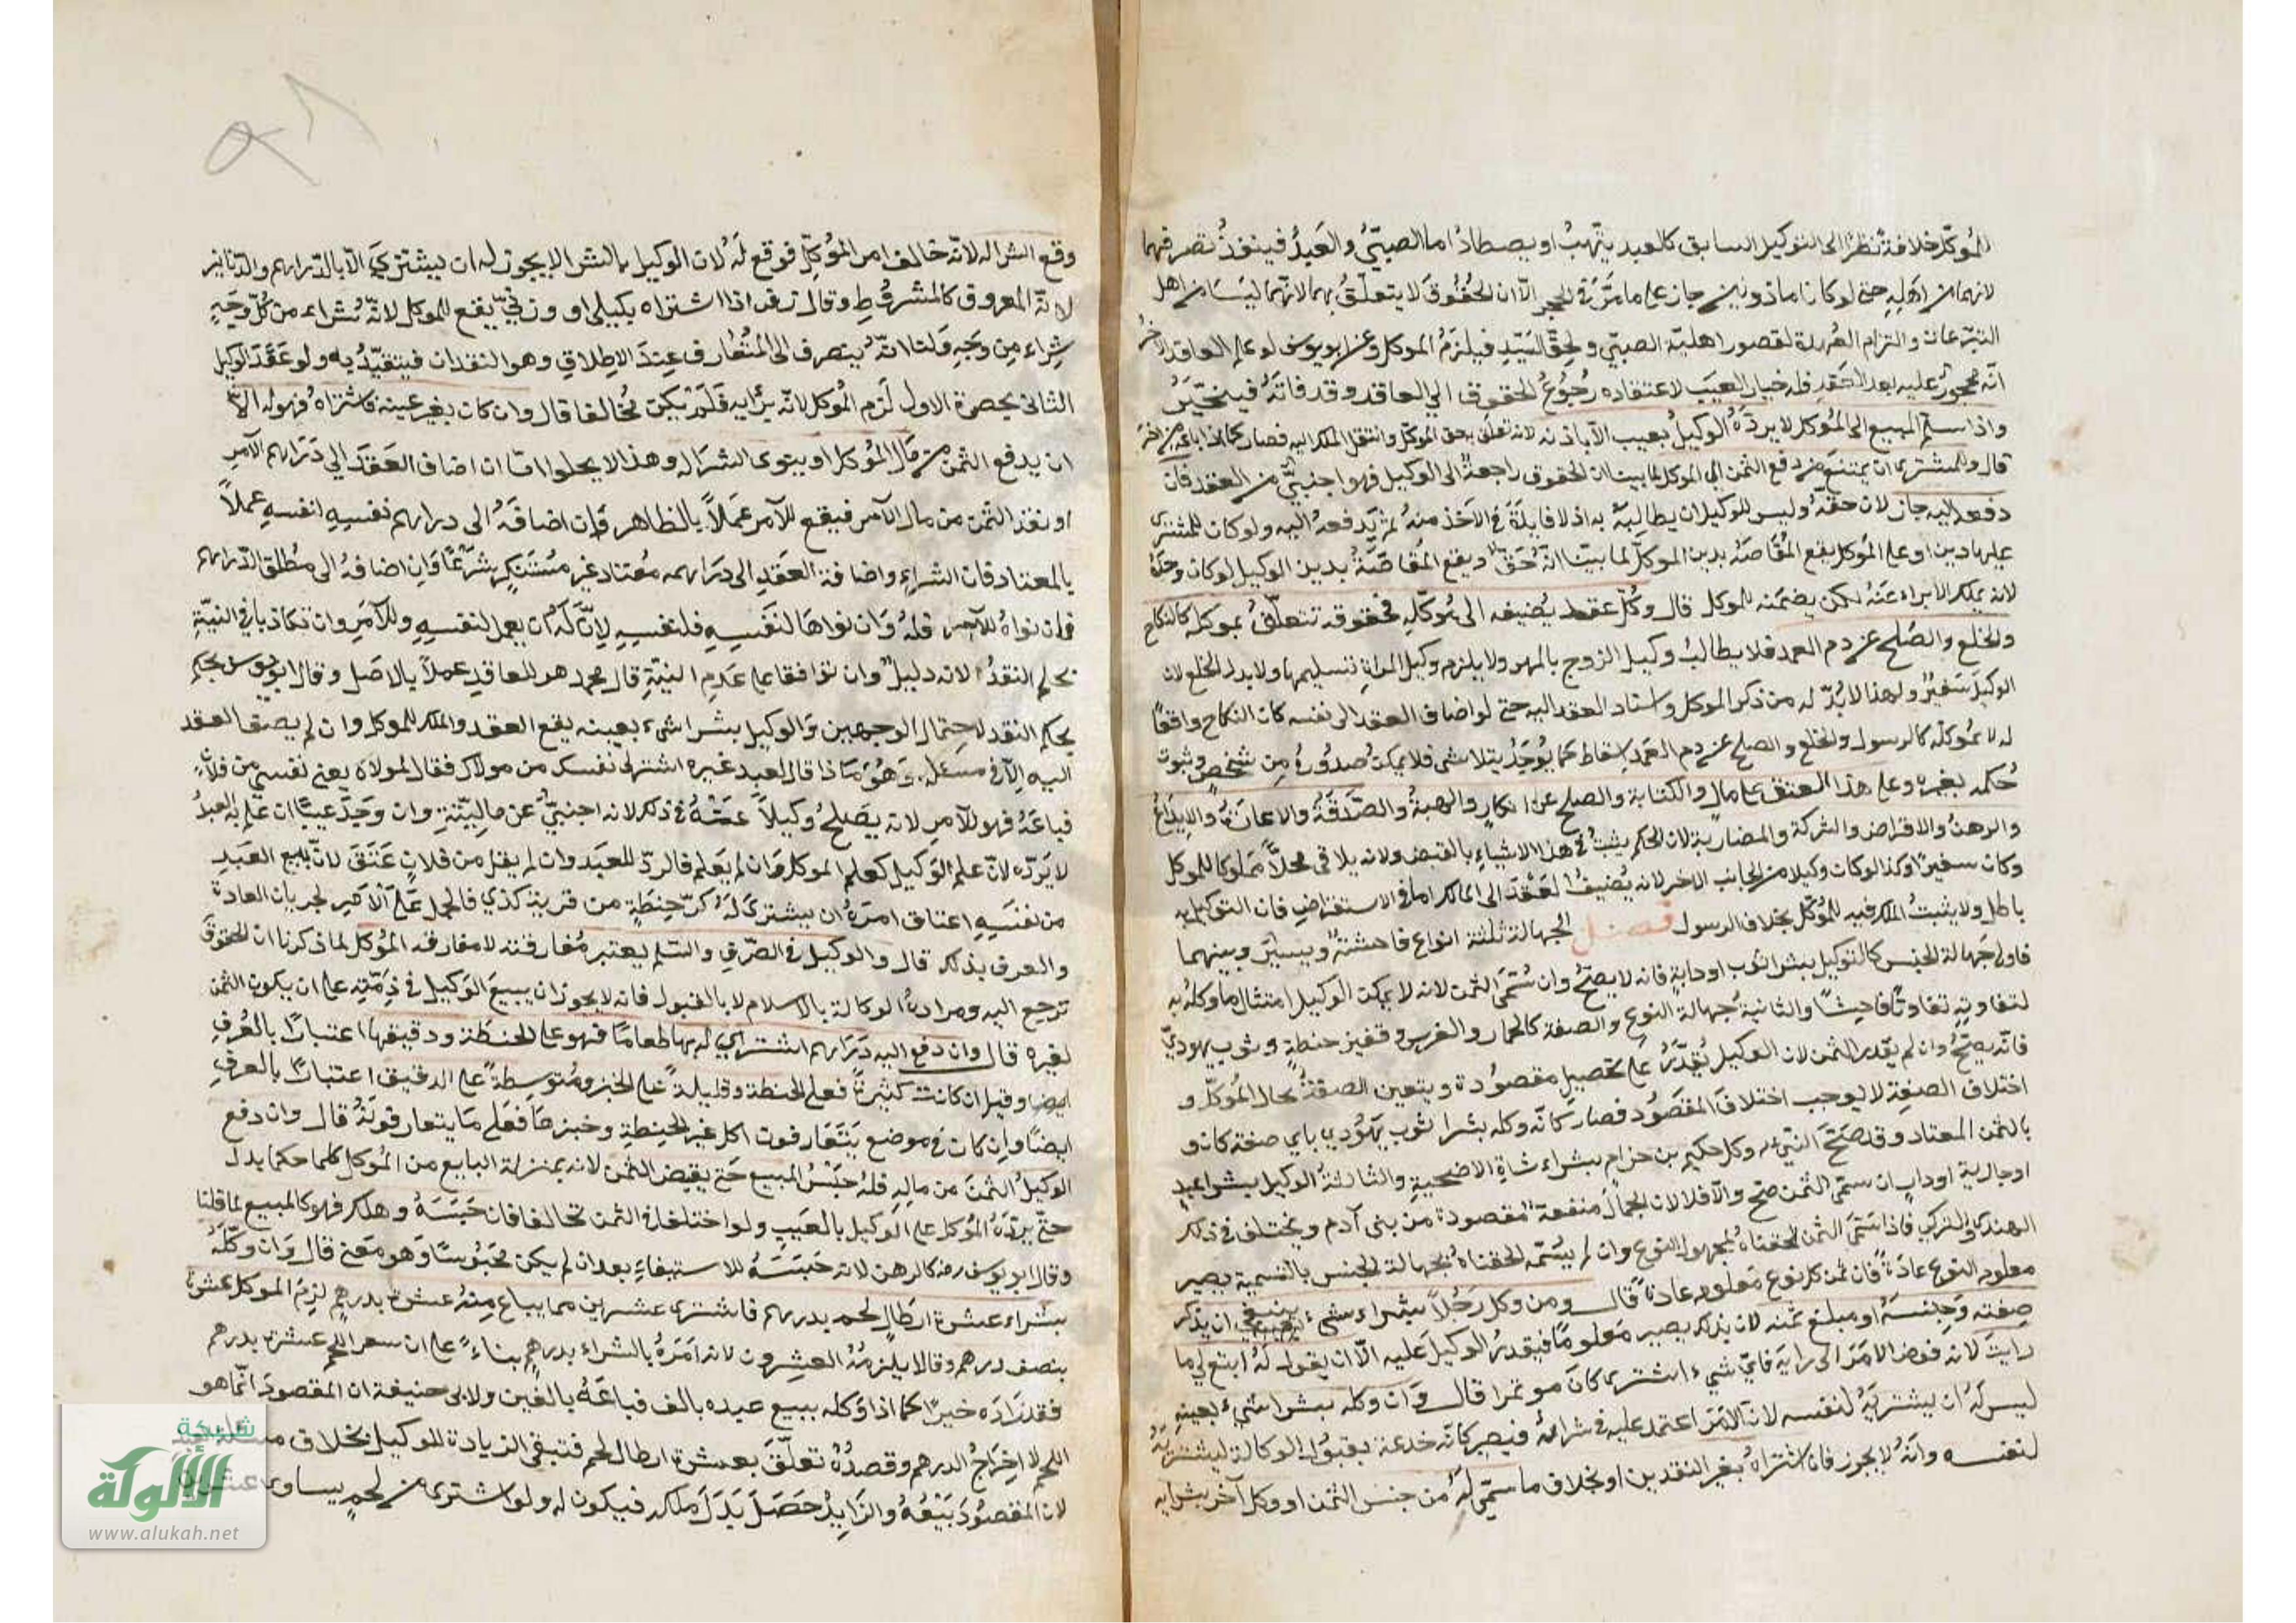 للموكل خلافة نظرا الى التوكيل السابق كالعبد يتهب او يصطاد اما الصبي والعبد فينفذ تصرفهما
لانهما من اهله حتى لو كانا ماذونين جاز على ما مر في الحجر الا ان الحقوق لا يتعلق بهما لانهما ليسا من اهل
التبرعات والتزام العهدة لقصور اهلية الصبي ولحق السيد فيلزم الموكل وعن ابو يوسف لو علم العاقد الاخر
انه محجور عليه بعد العقد فله خيار العيب لاعتقاده رجوع الحقوق الي العاقد وقد فاته فيتخير
واذا سلم المبيع الى الموكل لا يرده الوكيل بعيب الا باذنه لانه تعلق بحق الموكل وانتقل الملك اليه فصار كما اذا باعه من اخر
قال وللمشتري ان يمتنع من دفع الثمن الي الموكل لما بينا ان الحقوق راجعة الى الوكيل فهو اجنبي من العقد فان
دفعه اليه جاز لان حقه وليس للوكيل ان يطالبه به اذ لا فايدة في الاخذ منه ثم يدفعه اليه ولو كان للمشتري
عليهما دين او على الموكل يقع المقاصة بدين الموكل لما بينا انه حقه ويقع المقاصة بدين الوكيل لو كان وحده
لانه يملك الابراء عنه لكن يضمنه للموكل قال وكل عقد يضيفه الى موكله فحقوقه تتعلق بموكله كالنكاح
والخلع والصلح عن دم العمد فلا يطالب وكيل الزوج بالمهر ولا يلزم وكيل المراة تسليمها ولا بدل الخلع لان
الوكيل سفير ولهذا لا بد له من ذكر الموكل واسناد العقد اليه حتى لو اضاف العقد الى نفسه كان النكاح واقعا
له لا لموكله كالرسول والخلع والصلح عن دم العمد اسقاط كما يوجد يتلاشى فلا يمكن صدوره من شخص وثبوت
حكمه بغيره وعلى هذا العتق على مال والكتابة والصلح عن انكار والهبة والصدقة والاعارة والايداع
والرهن والاقراض والشركة والمضاربة لان الحكم يثبت في هذا الاشياء بالقبض ولانه يلاقي محلا مملوكا للموكل
وكان سفيرا وكذا لو كان وكيلا من الجانب الاخر لانه يضيف العقد الى المالك اما في الاستقراض فان التوكيل به
باطل ولا يثبت الملك فيه للموكل بخلاف الرسول فصل الجهالة ثلثة انواع فاحشة ويسير وبينهما
فاولى جهالة الجنس كالتوكيل بشرا ثوب او دابة فانه لا يصح وان سمى الثمن لانه لا يمكن الوكيل امتثال ما وكله به
لتفاوته تفاوتا فاحشا والثانية جهالة النوع والصفة كالحمار والفرس وقفيز حنطة وثوب يهودي
فانه يصح وان لم يقدر الثمن لان الوكيل يقدر على تحصيل مقصوده ويتعين الصفة بحال الموكل و
اختلاف الصفة لا يوجب اختلاف المقصود فصار كانه وكله بشرا ثوب يهودي باي صفة كان و
بالثمن المعتاد وقد صح النبي وكل حكيم بن حزام بشراء شاة الاضحية والثالثة الوكيل بشرا عبد
او جارية او دار ان سمى الثمن صح والا فلا لان الجمال منفعة مقصودة من بنى آدم ويختلف في ذلك
الهندي والتركي فاذا سمى الثمن الحقناه بمجهول النوع وان لم يسمه الحقناه بجهالة الجنس بالتسمية يصير
معلوم النوع عادة فان ثمن كل نوع معلوم عادة قال ومن وكل رجلا بشراء شيء ينبغي ان يذكر
صفته وجنسه او مبلغ ثمنه لان بذلك يصير معلوما فيقدر الوكيل عليه الا ان يقول له ابتع لي ما
رايت لانه فوض الامر الى رايه فاي شيء اشترى كان موتمرا قال وان وكله بشرا شيء بعينه
ليس له ان يشتريه لنفسه لان الامر اعتمد عليه في شرائه فيصير كانه خدعه بقبول الوكالة ليشتريه
لنفسه وانه لا يجوز فان اشتراه بغير النقدين او بخلاف ما سمى له من جنس الثمن او وكل آخر بشرايه
وقع الشرا له لانه خالف امر الموكل فوقع له لان الوكيل بالشرا لا يجوز له ان يشتري الا بالدراهم والدنانير
لانه المعروف كالمشروط وقال زفر اذا اشتراه بكيلي او وزني يقع للموكل لانه شراء من كل وجه
شراء من وجه قلنا انه ينصرف الى المتعارف عند الاطلاق وهو النقدان فيتقيد به ولو عقد الوكيل
الثاني بحضرة الاول لزم الموكل لانه برأيه فلم يكن مخالفا قال وان كان بغير عينه فاشتراه فهو له الا
ان يدفع الثمن من مال الموكل او ينوى الشرا له وهذا لا يخلوا اما ان اضاف العقد الي دراهم الآمر
او نقد الثمن من مال الآمر فيقع للآمر عملا بالظاهر فان اضافه الى دراهم نفسه لنفسه عملا
بالمعتاد فان الشراء واضافة العقد الى دراهمه معتاد غير مستنكر شرعا وان اضافه الى مطلق الدراهم
فان نواه للآمر فله وان نواها لنفسه فلنفسه لان له ان يعمل لنفسه وللآمر وان تكاذبا في النية
يحكم النقد لانه دليل وان توافقا على عدم النية قال محمد هو للعاقد عملا بالاصل وقال ابو يوسف يحكم
يحكم النقد لاحتمال الوجهين والوكيل بشرا شيء بعينه يقع العقد والملك للموكل وان لم يضف العقد
اليه الا في مسئلة وهو ما اذا قال لعبد غيره اشتر لى نفسك من مولاك فقال لمولاه يعنى نفسي من فلان
فباعه فهو للآمر لانه يصلح وكيلا عنه في ذلك لانه اجنبي عن ماليته وان وجد عيبا ان علم به العبد
لا يرده لان علم الوكيل كعلم الموكل وان لم يعلم فالرد للعبد وان لم يقل من فلان عتق لان بيع العبد
من نفسه اعتاق امره ان يشترى له كر حنطة من قرية كذي فالحمل على الآمر لجريان العادة
والعرف بذلك قال والوكيل في الصرف والسلم يعتبر مفارقته لا مفارقة الموكل لما ذكرنا ان الحقوق
ترجع اليه ومراده الوكالة بالاسلام لا بالقبول فانه لا يجوز ان يبيع الوكيل في ذمته على ان يكون الثمن
لغيره قال وان دفع اليه دراهم اشترى له بها طعاما فهو على الحنطة ودقيقها اعتبارا بالعرف
ايضا وقيل ان كانت كثيرة فعلى الحنطة وقليلة على الخبز ومتوسطة على الدقيق اعتبارا بالعرف
ايضا وان كان في موضع يتعارفون اكل غير الحنطة وخبزها فعلى ما يتعارفونه قال وان دفع
الوكيل الثمن من ماله فله حبس المبيع حتى يقبض الثمن لانه بمنزلة البايع من الموكل كلما حكما بدل
حتى يرده الموكل على الوكيل بالعيب ولو اختلفا في الثمن تحالفا فان حبسه وهلك فهو كالمبيع لما قلنا
وقال ابو يوسف رهنه كالرهن لانه حبسه للاستيفاء بعد ان لم يكن محبوسا وهو معنى قال وان وكله
بشراء عشرة ارطال لحم بدرهم فاشترى عشرين مما يباع منه عشرة بدرهم لزم الموكل عشرة
بنصف درهم وقالا يلزمه العشرون لانه امره بالشراء بدرهم بناء على ان سعر اللحم عشرة بدرهم
فقد زاده خيرا كما اذا وكله ببيع عبده بالف فباعه بالفين ولابى حنيفة ان المقصود انما هو
اللحم لا اخراج الدرهم وقصده تعلق بعشرة ارطال لحم فتبقى الزيادة للوكيل بخلاف مسئلة
لان المقصود بيعه والزايد حصل بدل ملكه فيكون له ولو اشترى من لحم يساوى عشرين
شبكة
الألوكة
www.alukah.net